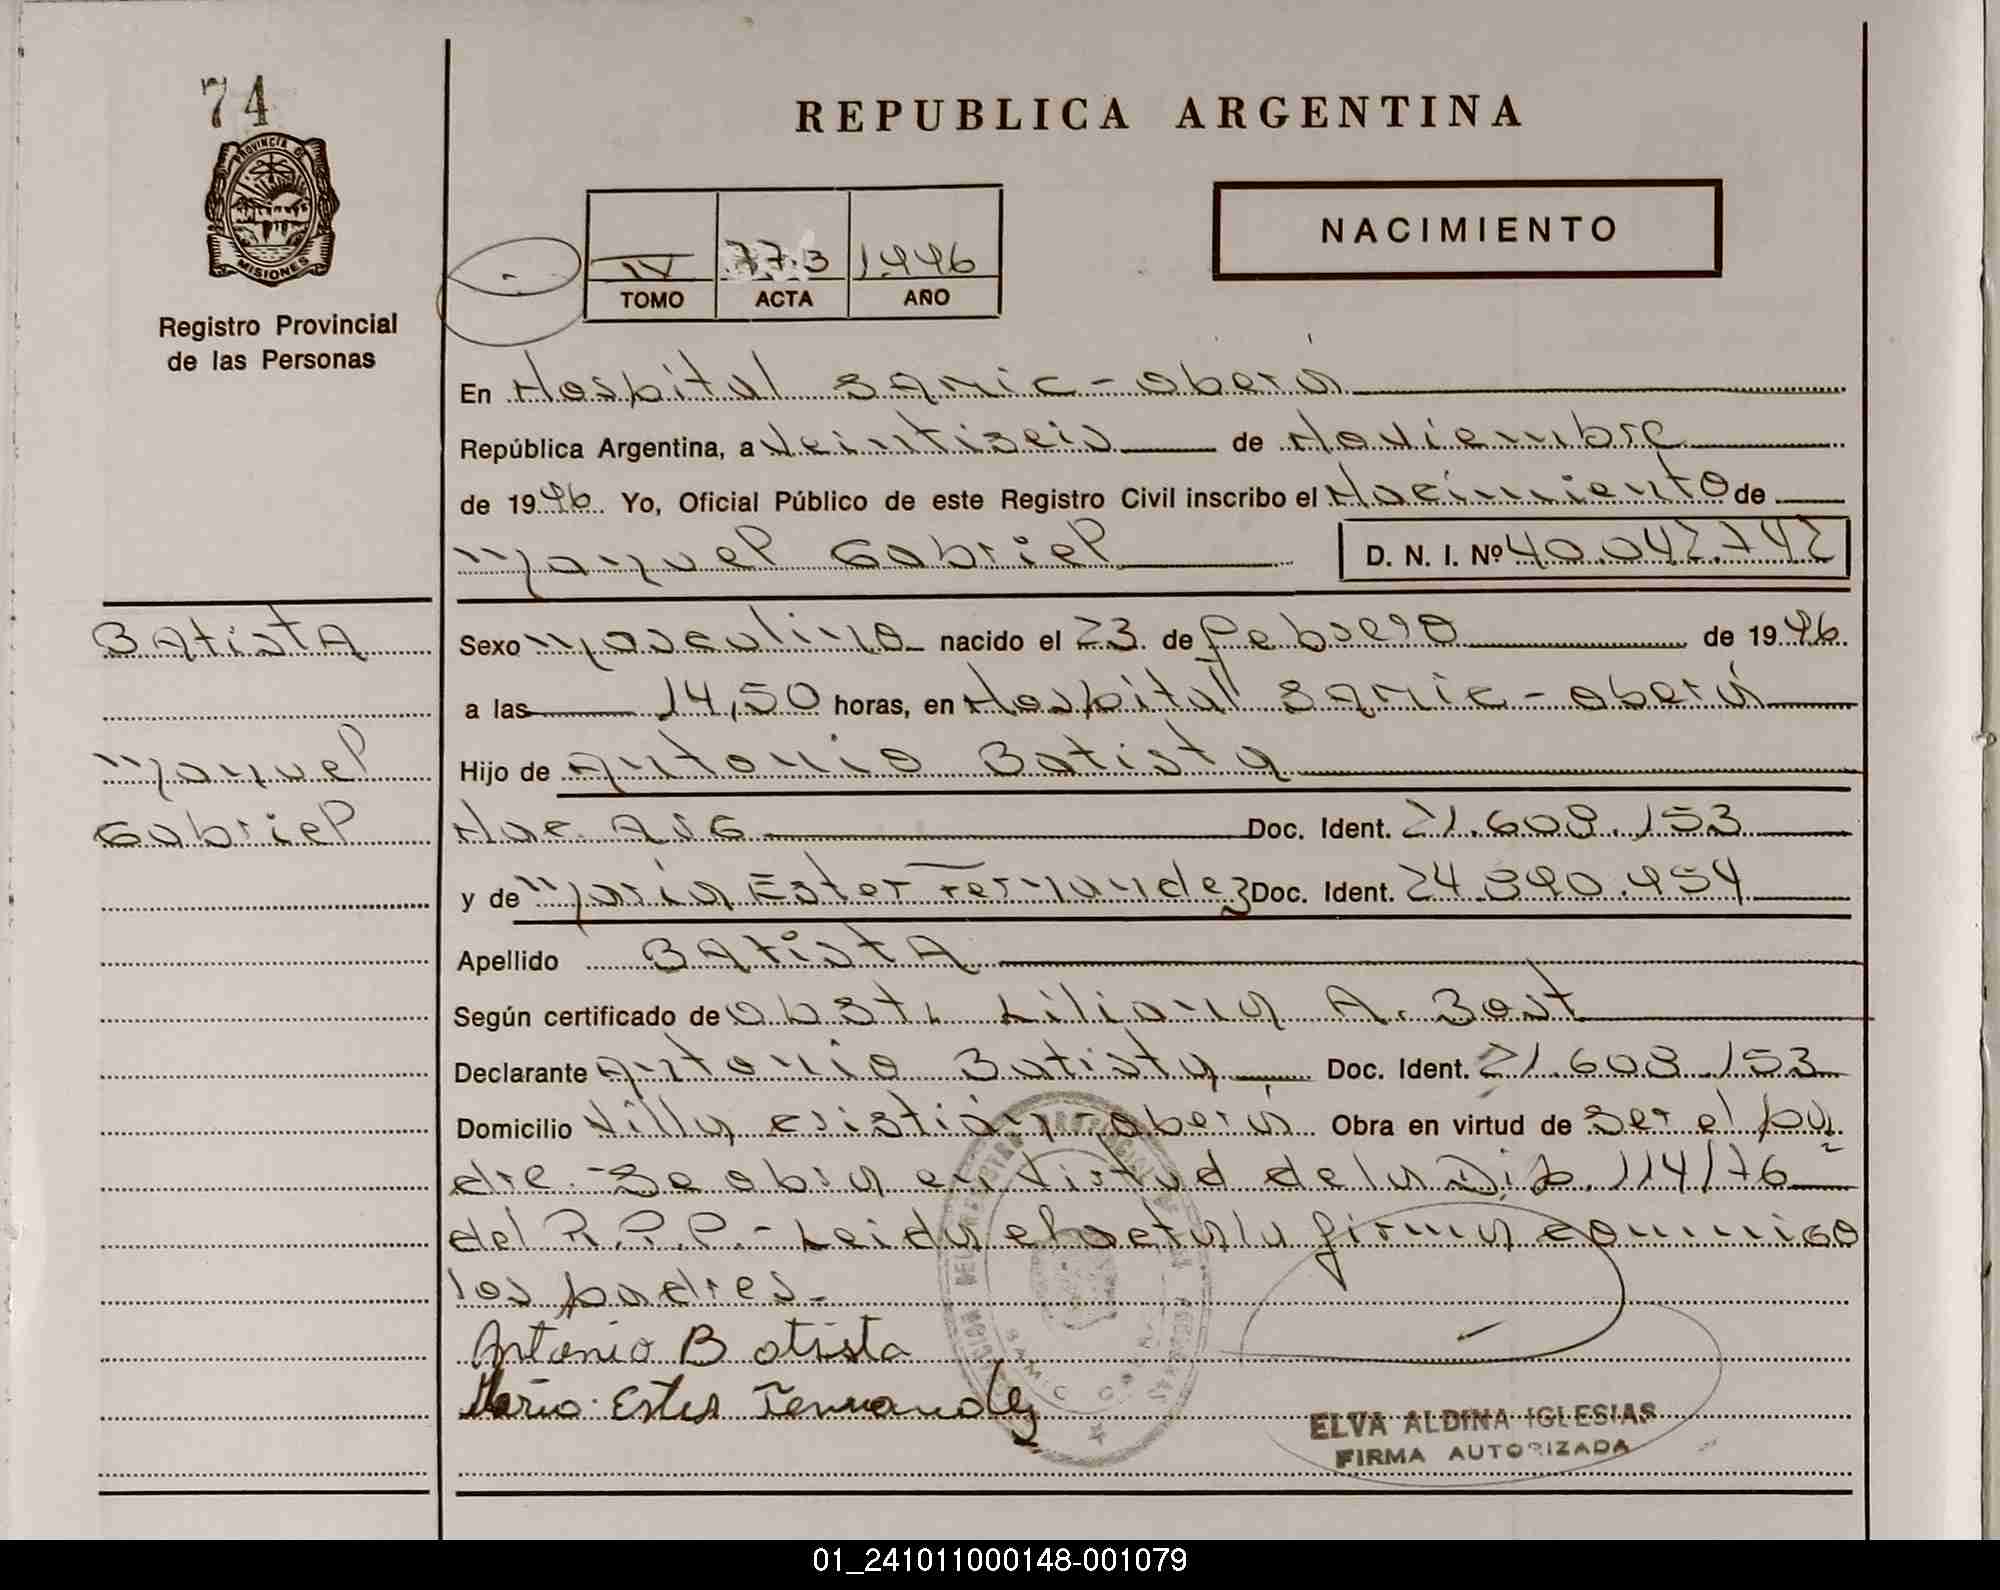 74
REPUBLICA ARGENTINA
PROVINCIA DE
MISIONES
Registro Provincial
de las Personas
IV 773 1996
TOMO ACTA AÑO
NACIMIENTO
En Hospital SAMIC - Oberá
República Argentina, a Veintiseis de Noviembre
de 1996. Yo, Oficial Público de este Registro Civil inscribo el Nacimiento de
Manuel Gabriel D. N. I. Nº 40.042.742
Batista
Manuel
Gabriel
Sexo Masculino nacido el 23 de febrero de 1996.
a las 14,50 horas, en Hospital SAMIC - Oberá
Hijo de Antonio Batista
Nac. Arg Doc. Ident. 21.608.153
y de María Ester Fernandez Doc. Ident. 24.890.954
Apellido BAtistA
Según certificado de Obst. Liliana A. Bost
Declarante Antonio Batista Doc. Ident. 21.608.153
Domicilio Villa Cristián Oberá Obra en virtud de ser el pa
dre. Se obra en virtud de la Dip. 114/76
del R.P.P.- Leida el acta la firman conmigo
los padres.-
Antonio Batista
Maria Ester Fernandez
ELVA ALDINA IGLESIAS
FIRMA AUTORIZADA
01_241011000148-001079